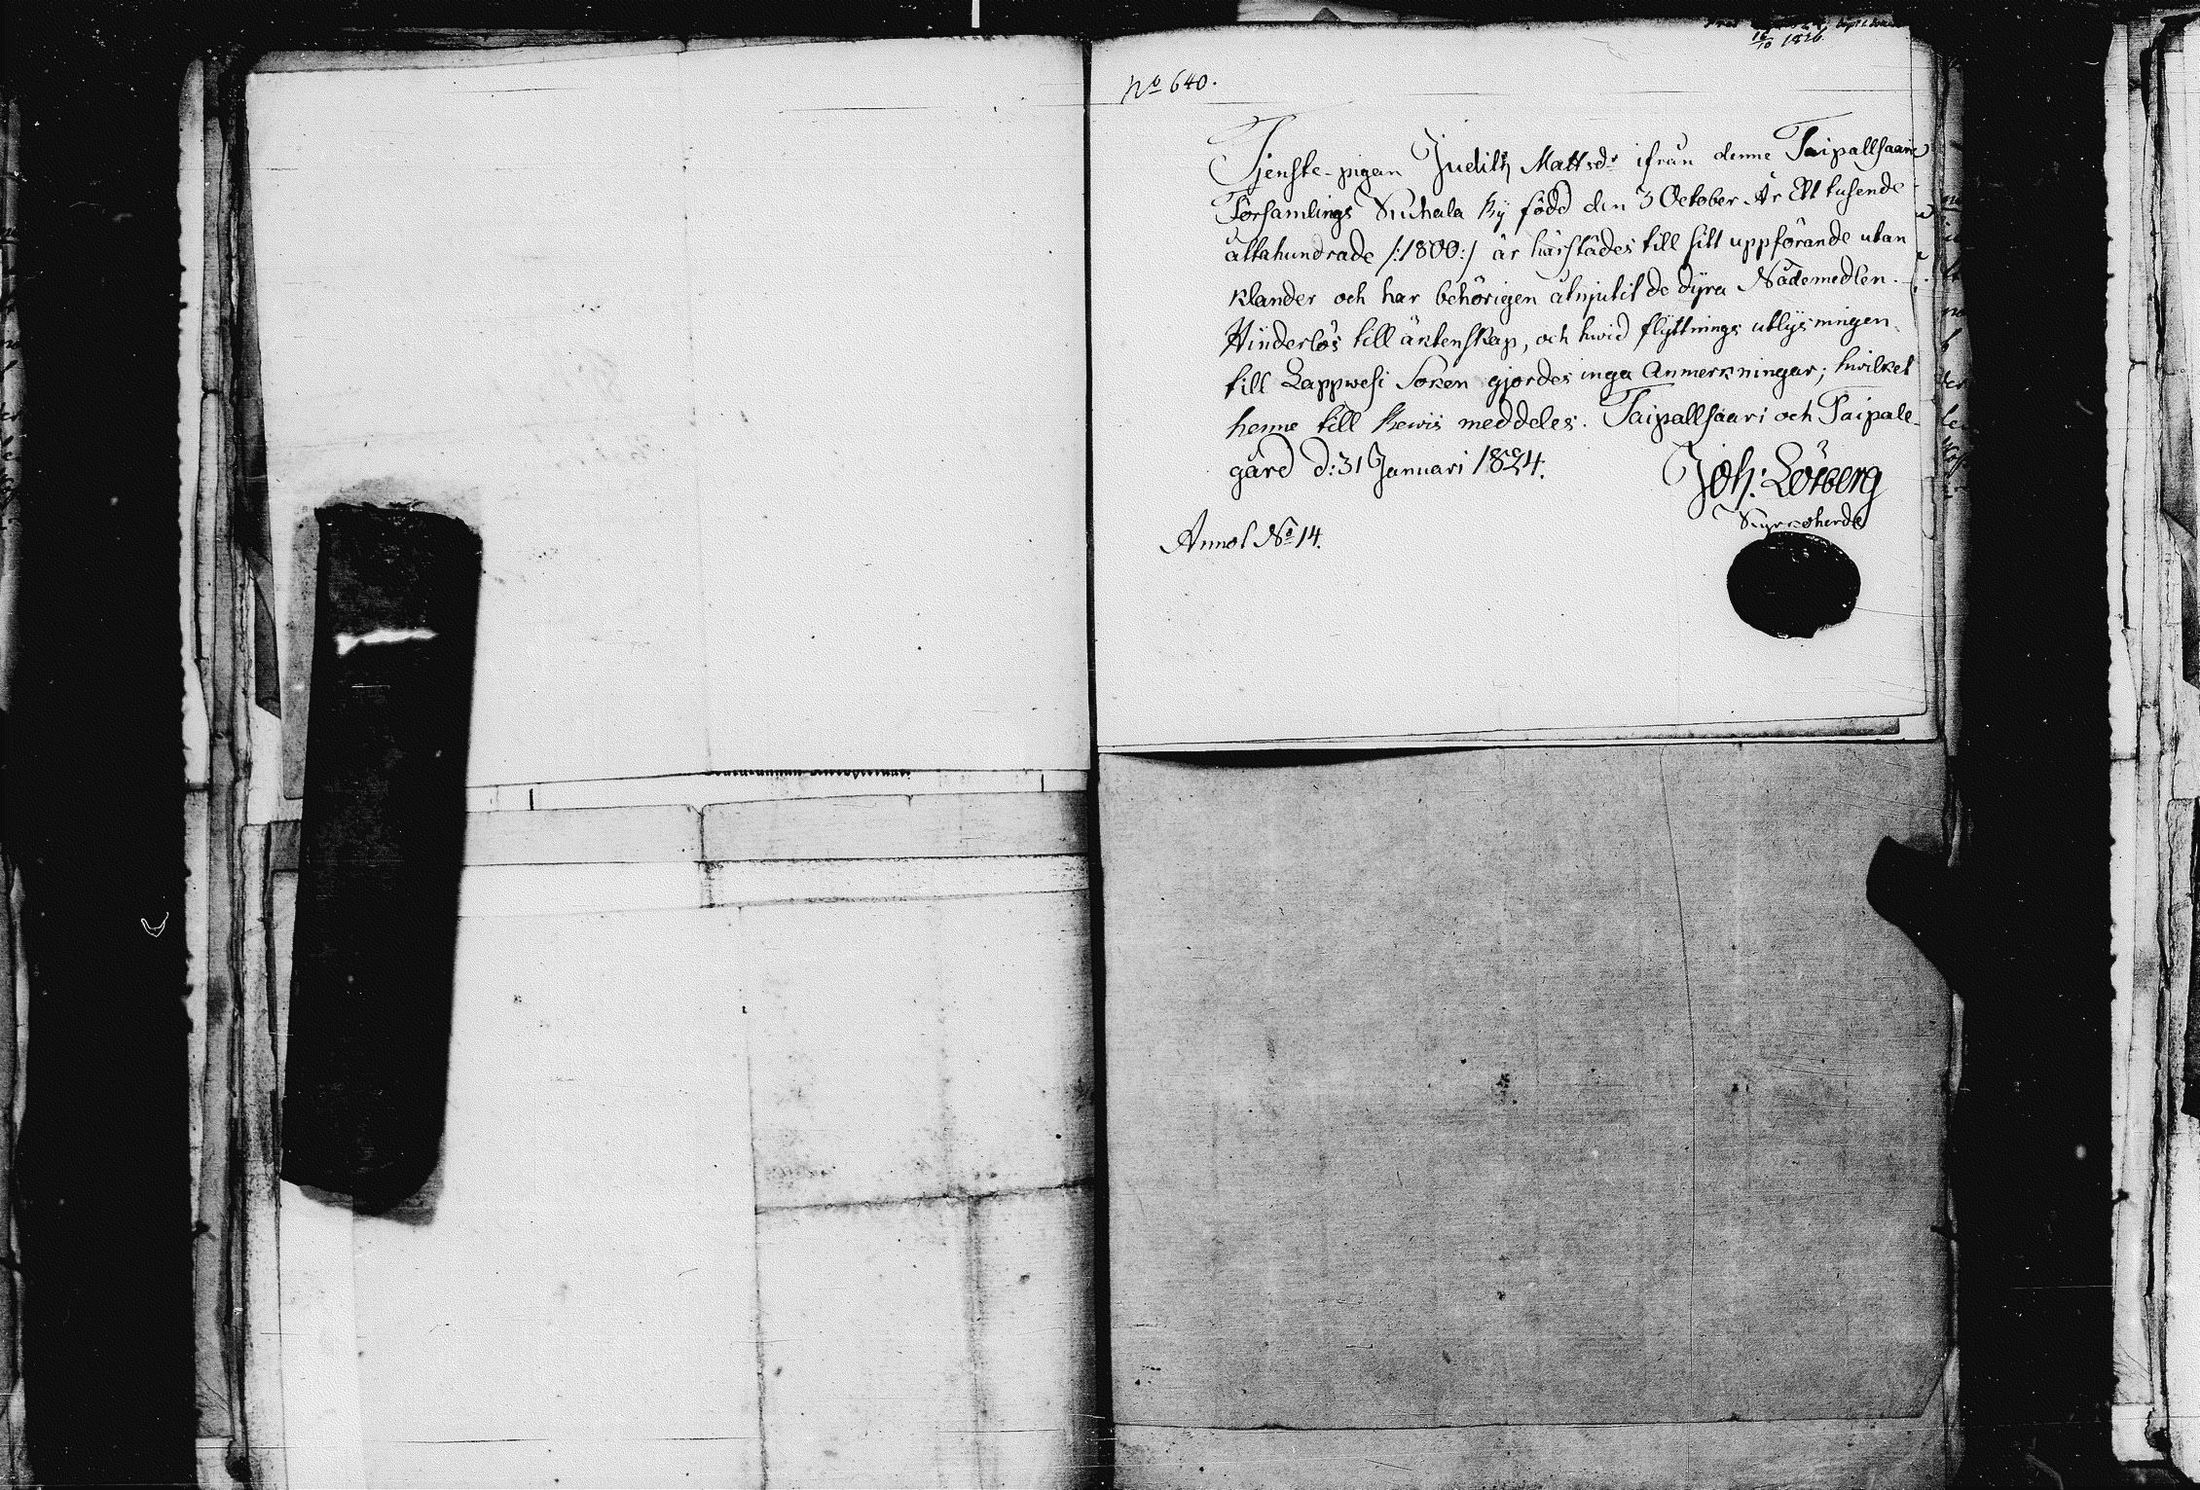 16/10 1826.
No 640.
Tjenste-pigan Judith Mattsdr ifrån denne Taipallsaari
Församlings Kuhala By född den 3 October År Ett tusende
åttahundrade /:1800:/ är härstädes till sitt uppförande utan
klander och har behörigen åtnjutit de dyra Nådemedlen.
Hinderlös till äktenskap, och hwid flyttnings utlysningen
till Lappwesi Soken gjordes inga Anmerkningar; hwilket
henne till bewis meddeles. Taipallsaari och Taipale
gård d: 31 Januari 1824.
Joh: Löfberg
Kyrkoherde
Annot No 14.